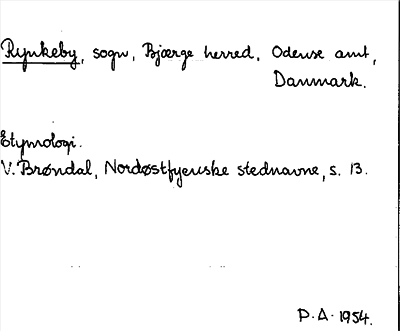 Rynkeby, sogn, Bjærge herred, Odense amt,
Danmark.
Etymologi.
V. Brøndal, Nordøstfyenske stednavne, s. 13.
P.A. 1954.